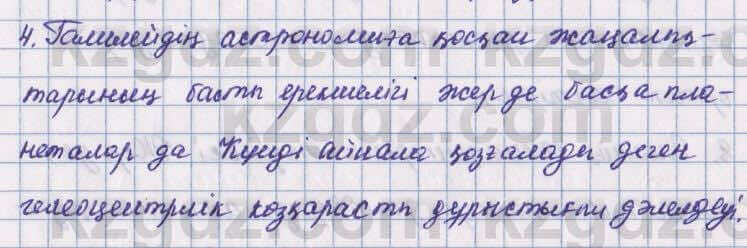 4. Галилейдің астрономияға қосқан жаңалық-
тарының басты ерекшелігі жер де басқа пла-
неталар да Күнді айнала қозғалады деген
гелеоцентрлік көзқарасты дұрыстығын дәлелдеуі.